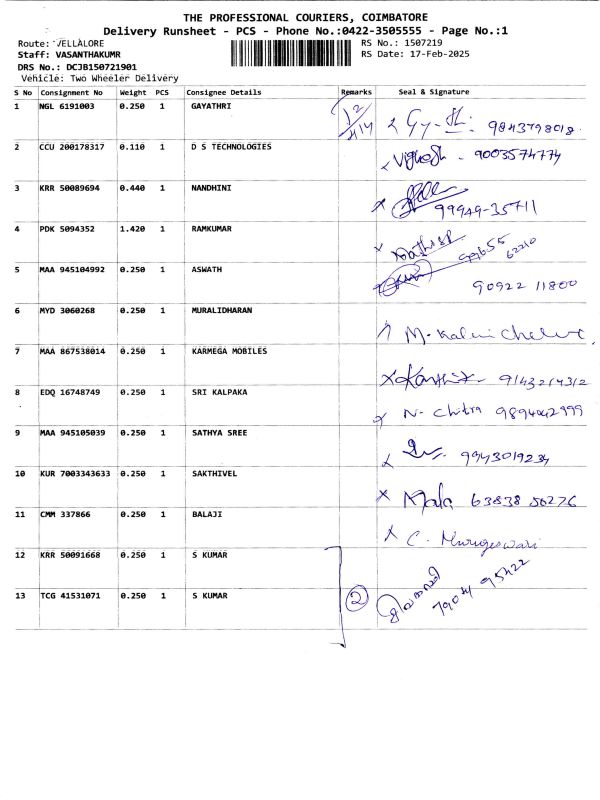 THE PROFESSIONAL COURIERS, COIMBATORE
Delivery Runsheet - PCS - Phone No.:0422-3505555 - Page No.:1
Route: VELLALORE
RS No.: 1507219
Staff: VASANTHAKUMR
RS Date: 17-Feb-2025
DRS No.: DCJB150721901
Vehicle: Two Wheeler Delivery
S No Consignment No Weight PCS Consignee Details Remarks Seal & Signature
1 NGL 6191003 0.250 1 GAYATHRI 9843798018
2 CCU 200178317 0.110 1 D S TECHNOLOGIES Vighesh - 9003574774
3 KRR 50089694 0.440 1 NANDHINI x 99949-35711
4 PDK 5094352 1.420 1 RAMKUMAR x 99655 62210
5 MAA 945104992 0.250 1 ASWATH 90922 11800
6 MYD 3060268 0.250 1 MURALIDHARAN
7 MAA 867538014 0.250 1 KARMEGA MOBILES x Karthik - 9143214312
8 EDQ 16748749 0.250 1 SRI KALPAKA x N- Chitra 9894042999
9 MAA 945105039 0.250 1 SATHYA SREE 9943019234
10 KUR 7003343633 0.250 1 SAKTHIVEL x Mala 63838 50276
11 CMM 337866 0.250 1 BALAJI x C. Murugeswari
12 KRR 50091668 0.250 1 S KUMAR
13 TCG 41531071 0.250 1 S KUMAR 2 7904 95422